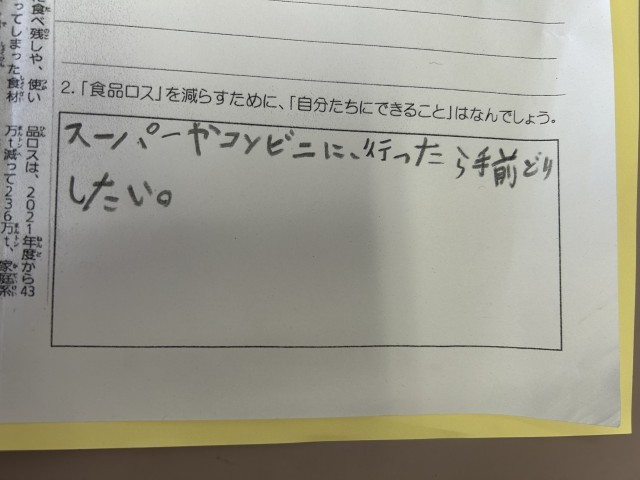 食べ残しや、使い
ってしまった食材
品ロスは、2021年度から43
万t減って236万t、家庭系
2.「食品ロス」を減らすために、「自分たちにできること」はなんでしょう。
スーパーやコンビニに、行ったら手前どり
したい。